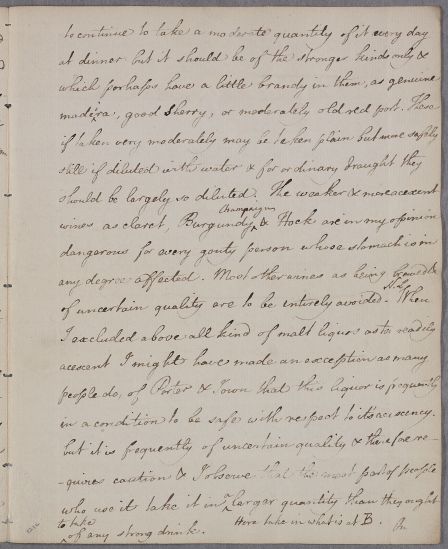 to continue to take a moderate quantity of it every day
at dinner but it should be of the stronger kinds only &
which perhaps have a little brandy in them, as genuine
madeira, good Sherry, or moderately old red port. These
if taken very moderately may be taken plain but more safely
still if diluted with water & for ordinary draught they
should be largely so diluted. The weaker & more acescent
wines as claret, Burgundy, Champaign & Hock are in my opinion
dangerous for every gouty person whose stomach is in
any degree affected. Most other wines as being brewed &
of uncertain quality are to be intirely avoided. When
I excluded above all kind of malt liquors as too readily
acescent I might have made an exception as many
people do, of Porter & I own that this liquor is frequently
in a condition to be safe with respect to its acescency.
but it is frequently of uncertain quality & therefore re-
quires caution & I observe that the most part of people
who use it take it in larger quantity than they ought
to take of any strong drink. Here take in what is at B.